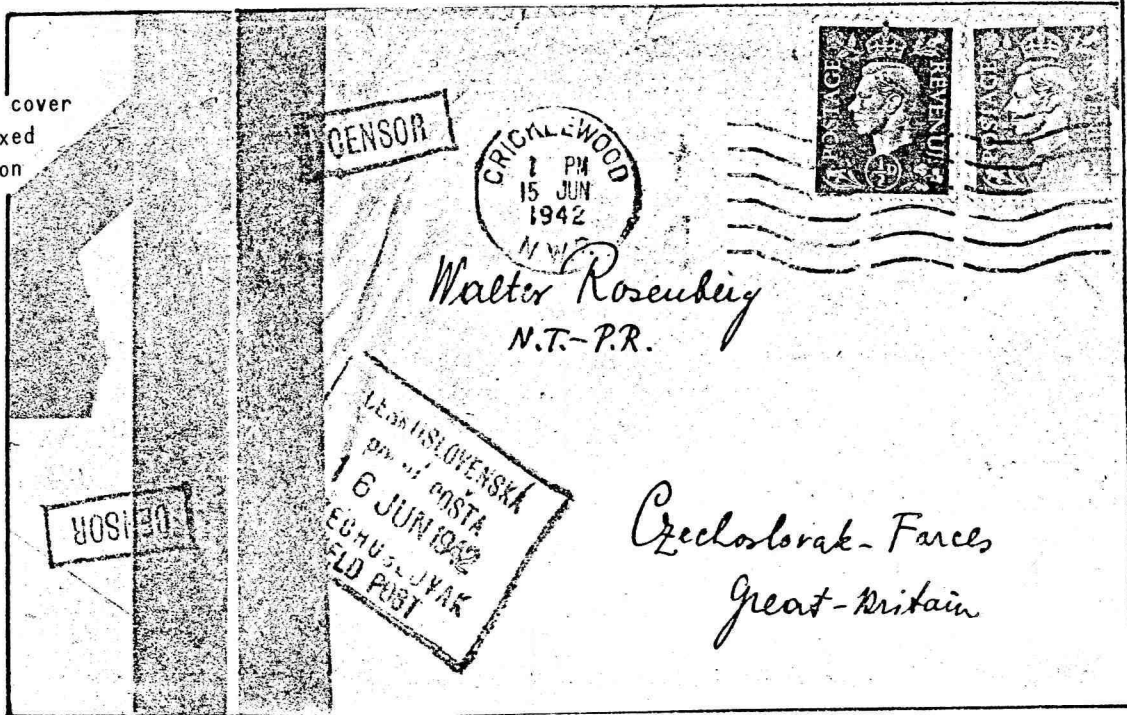 cover
xed
on
CENSOR
CRICKLEWOOD
1 PM
15 JUN
1942
POSTAGE REVENUE
½D
POSTAGE
Walter Rosenberg
N.T.-P.R.
ČESKOSLOVENSKÁ
POŠTA
6 JUN 1942
FIELD POST
CENSOR
Czechoslovak-Forces
Great-Britain